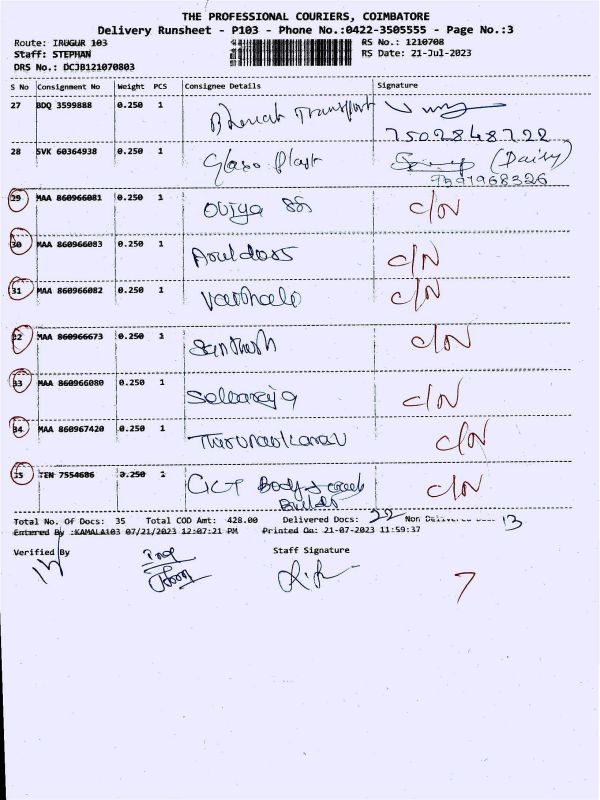 THE PROFESSIONAL COURIERS, COIMBATORE
Delivery Runsheet - P103 - Phone No.:0422-3505555 - Page No.:3
Route: IRUGUR 103 RS No.: 1210708
Staff: STEPHAN RS Date: 21-Jul-2023
DRS No.: DCJB121070803
S No Consignment No Weight PCS Consignee Details Signature
27 BDQ 3599888 0.250 1 Bharat Transport
7502848722
28 SVK 60364938 0.250 1 Glaso Plast (Daisy)
9591968326
29 MAA 860966081 0.250 1 Oviya C/N
30 MAA 860966083 0.250 1 Aruldoss C/N
31 MAA 860966082 0.250 1 C/N
32 MAA 860966673 0.250 1 Santhosh C/N
33 MAA 860966080 0.250 1 C/N
34 MAA 860967420 0.250 1 C/N
35 TEN 7554686 0.250 1 Body C/N
Total No. Of Docs: 35 Total COD Amt: 428.00 Delivered Docs: 22 Non Delivered Docs: 13
Entered By :KAMALA103 07/21/2023 12:07:21 PM Printed On: 21-07-2023 11:59:37
Verified By Staff Signature
7